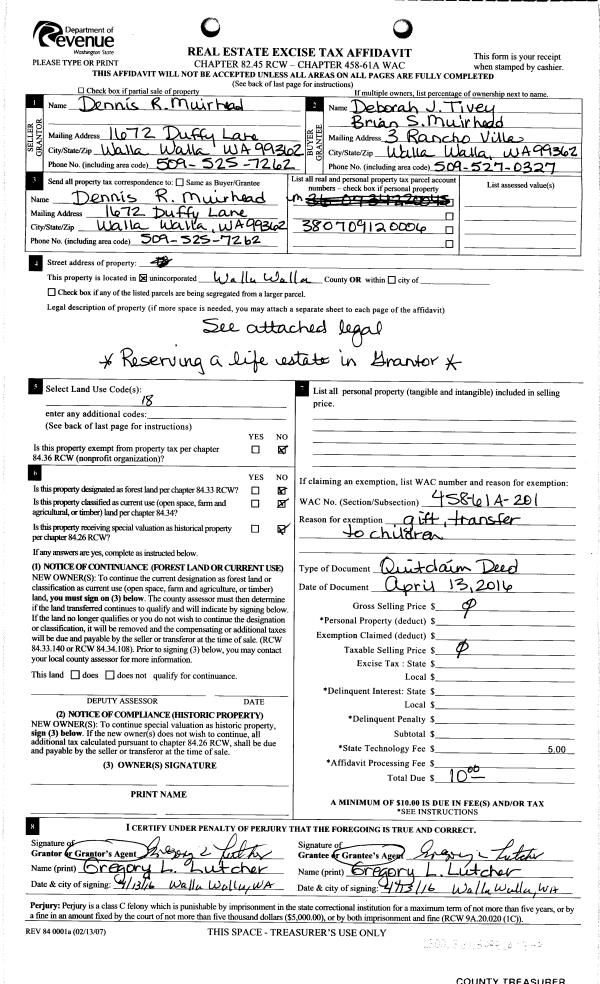 Department of
Revenue
Washington State
PLEASE TYPE OR PRINT
REAL ESTATE EXCISE TAX AFFIDAVIT
CHAPTER 82.45 RCW – CHAPTER 458-61A WAC
This form is your receipt
when stamped by cashier.
THIS AFFIDAVIT WILL NOT BE ACCEPTED UNLESS ALL AREAS ON ALL PAGES ARE FULLY COMPLETED
(See back of last page for instructions)
Check box if partial sale of property
If multiple owners, list percentage of ownership next to name.
1 Name Dennis R. Muirhead
SELLER GRANTOR
Mailing Address 1672 Duffy Lane
City/State/Zip Walla Walla WA 99362
Phone No. (including area code) 509-525-7262
2 Name Deborah J. Tivey
Brian S. Muirhead
BUYER GRANTEE
Mailing Address 3 Rancho Villa
City/State/Zip Walla Walla, WA 99362
Phone No. (including area code) 509-527-0327
3 Send all property tax correspondence to: Same as Buyer/Grantee
Name Dennis R. Muirhead
Mailing Address 1672 Duffy Lane
City/State/Zip Walla Walla, WA 99362
Phone No. (including area code) 509-525-7262
List all real and personal property tax parcel account
numbers – check box if personal property
380709120006
List assessed value(s)
4 Street address of property:
This property is located in unincorporated Walla Walla County OR within city of
Check box if any of the listed parcels are being segregated from a larger parcel.
Legal description of property (if more space is needed, you may attach a separate sheet to each page of the affidavit)
See attached legal
* Reserving a life estate in Grantor *
5 Select Land Use Code(s):
18
enter any additional codes:
(See back of last page for instructions)
YES NO
Is this property exempt from property tax per chapter
84.36 RCW (nonprofit organization)?
6
YES NO
Is this property designated as forest land per chapter 84.33 RCW?
Is this property classified as current use (open space, farm and
agricultural, or timber) land per chapter 84.34?
Is this property receiving special valuation as historical property
per chapter 84.26 RCW?
If any answers are yes, complete as instructed below.
(1) NOTICE OF CONTINUANCE (FOREST LAND OR CURRENT USE)
NEW OWNER(S): To continue the current designation as forest land or
classification as current use (open space, farm and agriculture, or timber)
land, you must sign on (3) below. The county assessor must then determine
if the land transferred continues to qualify and will indicate by signing below.
If the land no longer qualifies or you do not wish to continue the designation
or classification, it will be removed and the compensating or additional taxes
will be due and payable by the seller or transferor at the time of sale. (RCW
84.33.140 or RCW 84.34.108). Prior to signing (3) below, you may contact
your local county assessor for more information.
This land does does not qualify for continuance.
DEPUTY ASSESSOR DATE
(2) NOTICE OF COMPLIANCE (HISTORIC PROPERTY)
NEW OWNER(S): To continue special valuation as historic property,
sign (3) below. If the new owner(s) does not wish to continue, all
additional tax calculated pursuant to chapter 84.26 RCW, shall be due
and payable by the seller or transferor at the time of sale.
(3) OWNER(S) SIGNATURE
PRINT NAME
7 List all personal property (tangible and intangible) included in selling
price.
If claiming an exemption, list WAC number and reason for exemption:
WAC No. (Section/Subsection) 458-61A-201
Reason for exemption gift, transfer
to children
Type of Document Quitclaim Deed
Date of Document April 13, 2016
Gross Selling Price $ 0
*Personal Property (deduct) $
Exemption Claimed (deduct) $
Taxable Selling Price $ 0
Excise Tax : State $
Local $
*Delinquent Interest: State $
Local $
*Delinquent Penalty $
Subtotal $
*State Technology Fee $ 5.00
*Affidavit Processing Fee $
Total Due $ 10.00
A MINIMUM OF $10.00 IS DUE IN FEE(S) AND/OR TAX
*SEE INSTRUCTIONS
8 I CERTIFY UNDER PENALTY OF PERJURY THAT THE FOREGOING IS TRUE AND CORRECT.
Signature of
Grantor or Grantor's Agent Gregory L Lutcher
Name (print) Gregory L. Lutcher
Date & city of signing: 4/13/16 Walla Walla, WA
Signature of
Grantee or Grantee's Agent Gregory L Lutcher
Name (print) Gregory L. Lutcher
Date & city of signing: 4/13/16 Walla Walla, WA
Perjury: Perjury is a class C felony which is punishable by imprisonment in the state correctional institution for a maximum term of not more than five years, or by
a fine in an amount fixed by the court of not more than five thousand dollars ($5,000.00), or by both imprisonment and fine (RCW 9A.20.020 (1C)).
REV 84 0001a (02/13/07)
THIS SPACE - TREASURER'S USE ONLY
COUNTY TREASURER